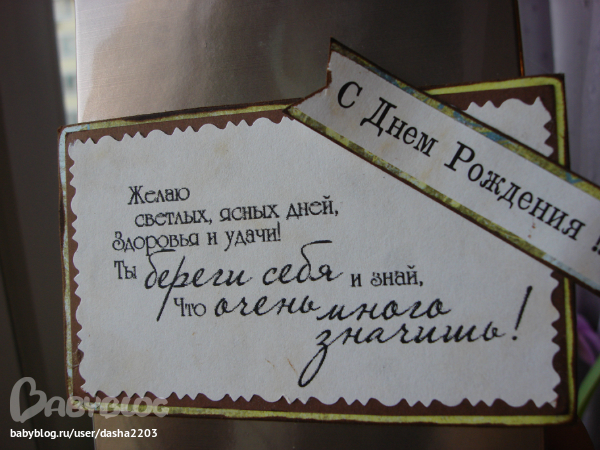 С Днем Рождения !!
Желаю
светлых, ясных дней,
Здоровья и удачи!
Ты береги себя и знай,
Что очень много
значишь!
BABYBLOG
babyblog.ru/user/dasha2203